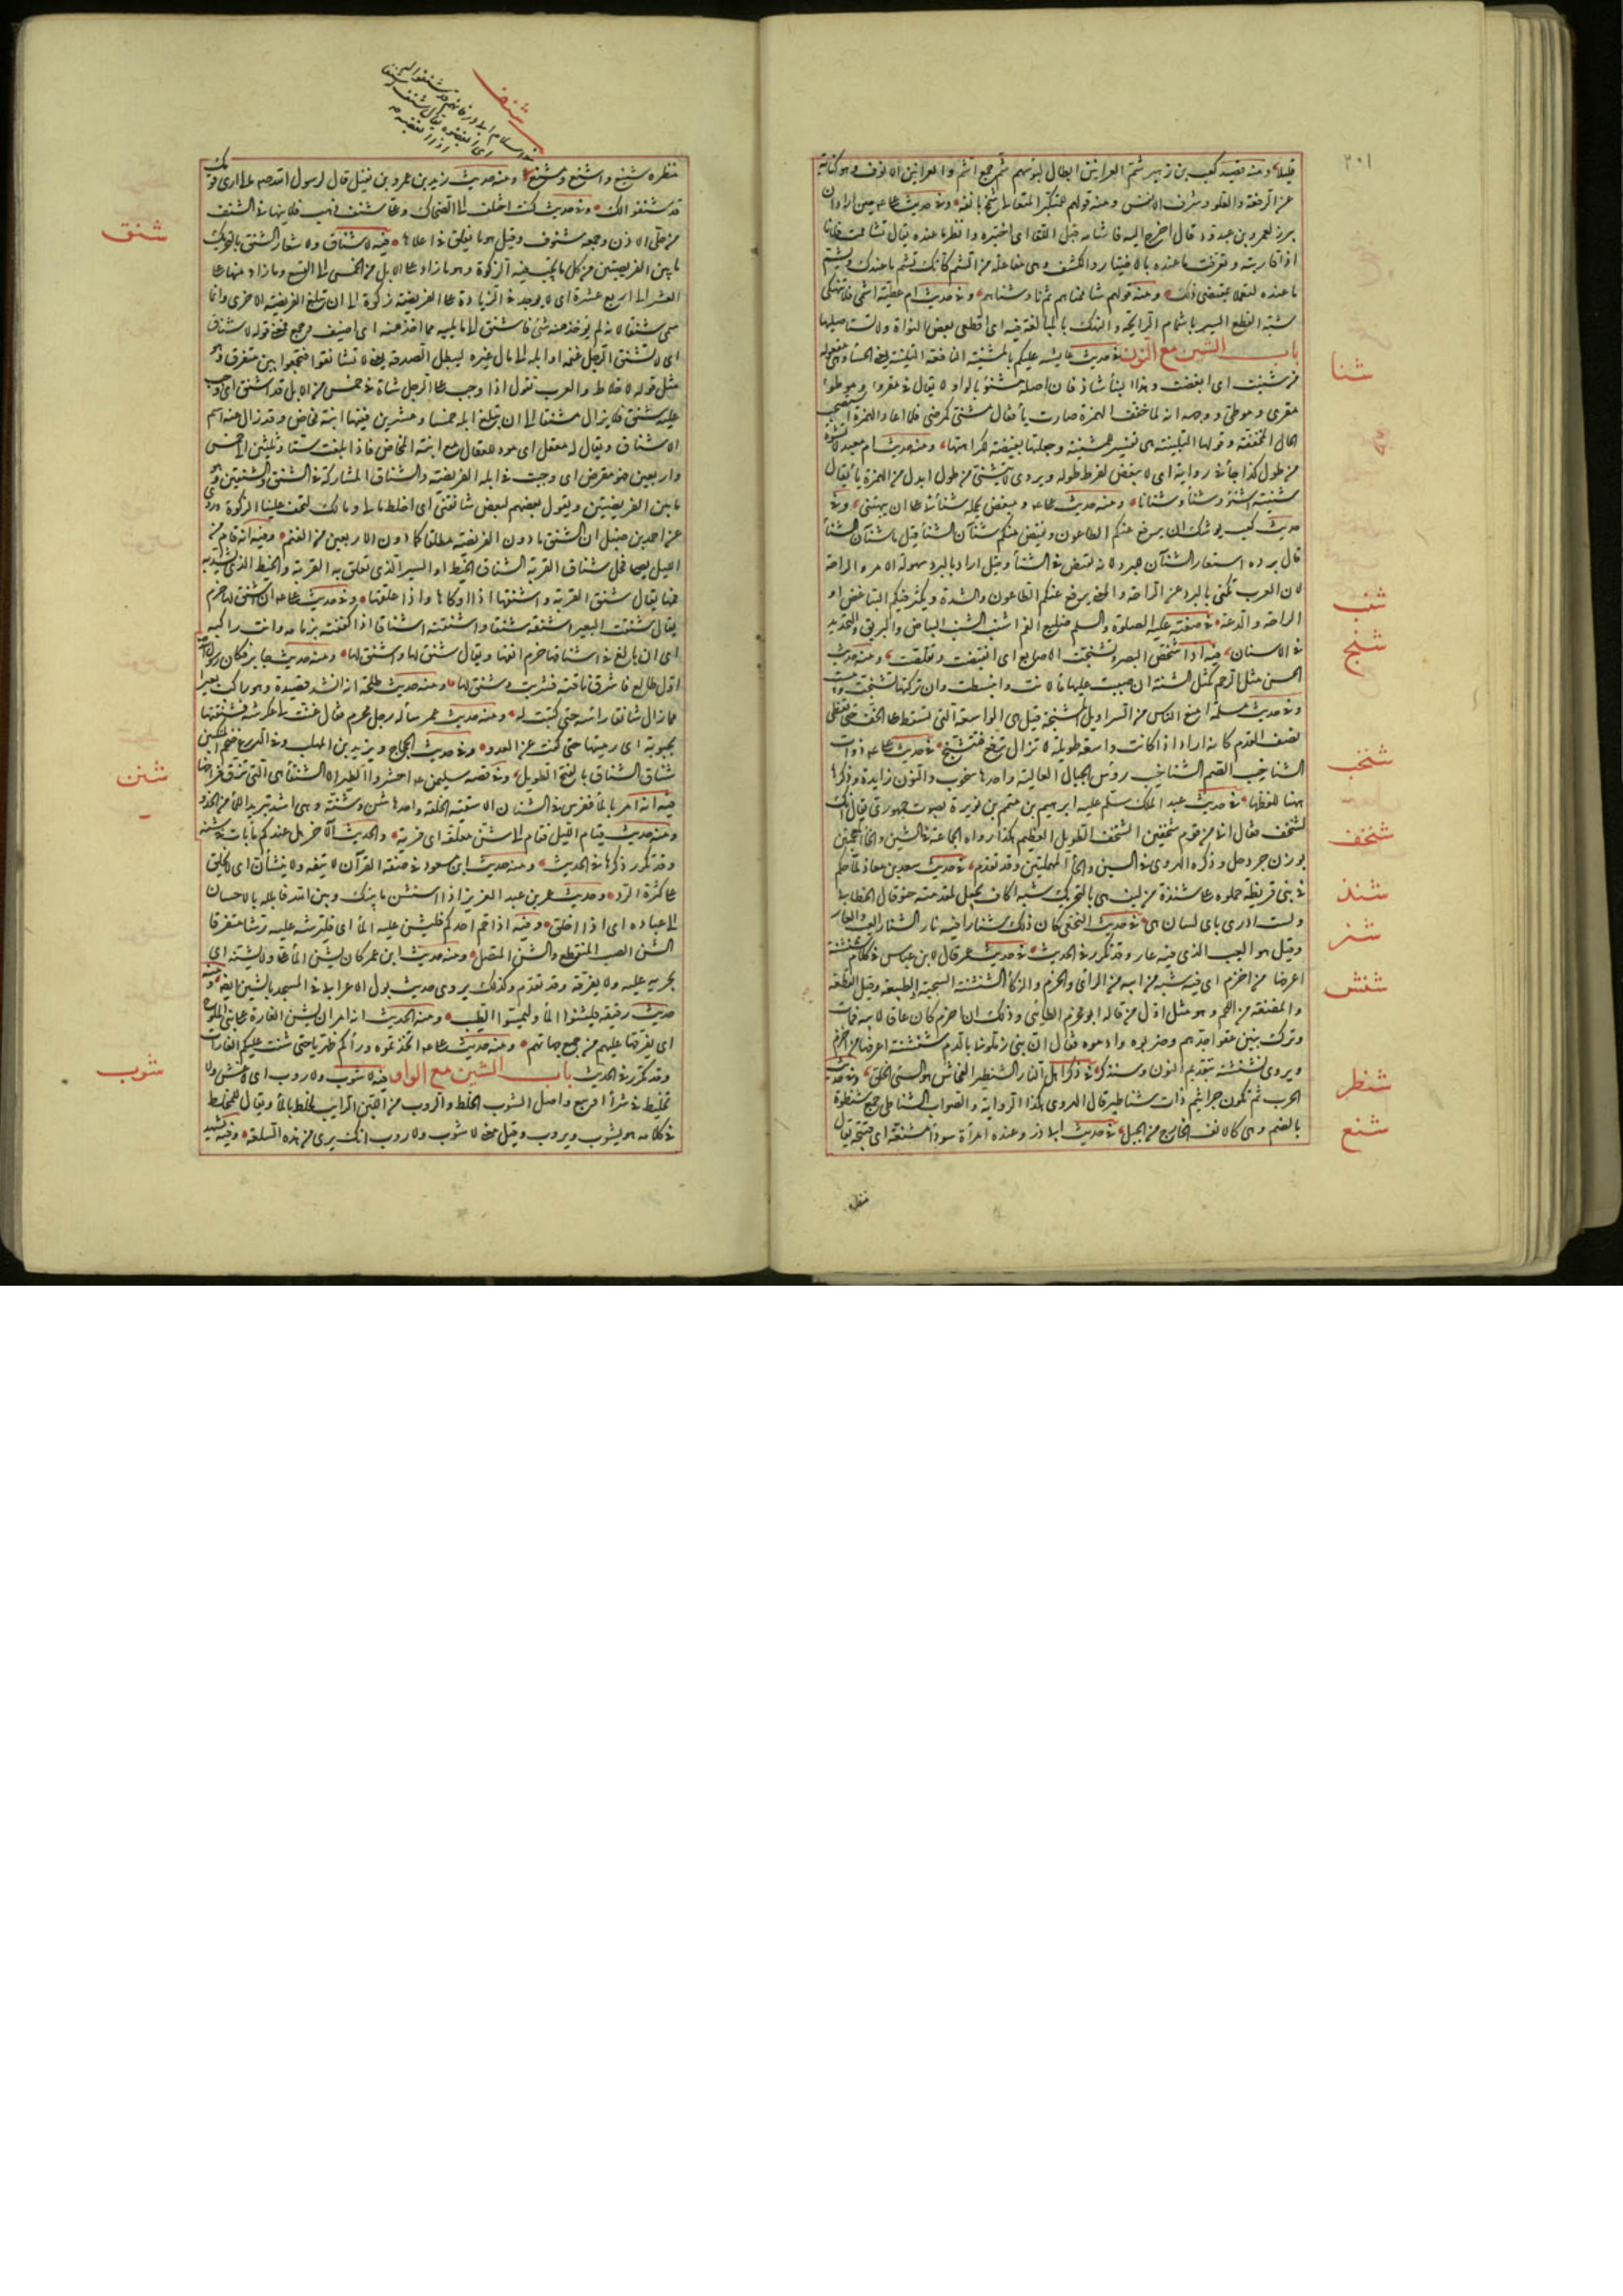 ٢٠١
قليلا ومنه قصيد كعب بن زهير شم العرانين ابطال لبوسهم شم جمع اشم والعرانين الانوف وهو كناية
عن الرفعة والعلو وشرف الانفس ومنه قولهم للمتكبر المتعالي شمخ بانفه وفي حديث علي حين اراد ان
يبرز لعمرو بن عبد ود قال اخرج اليه فاشامه قبل اللقاء اى اختبره وانظر ما عنده يقال شاممت فلانا
اذا قاربته وتعرفت ما عنده بالاختبار والكشف وهى مفاعلة من الشم كأنك تشم ما عنده ويشم
ما عندك لتعملا بمقتضى ذلك ومنه قولهم شاممناهم ثم ناوشناهم وفي حديث ام عطية اشمى ولا تنهكى
شبه القطع اليسير باشمام الرائحة والنهك بالمبالغة فيه اى اقطعى بعض النواة ولا تستاصليها
باب الشين مع النون في حديث عايشة عليكم بالمشنيئة النافعة التلبينة يعنى الحساء وهى مفعولة
شنا
من شنئت اى ابغضت وهذا البناء شاذ فان اصله مشنوء بالواو ولا يقال فى مقروء وموطوء
مقرى وموطى ووجهه انه لما خفف الهمزة صارت ياء فقال مشنى كمرضى فلما اعاد الهمزة استصحب
الحال المخففة وقولها التلبينة هى تفسير للمشنيئة وجعلتها بغيضة لكراهتها ومنه حديث ام معبد لا تشنوه
من طول كذا جاء فى رواية اى لا يبغض لفرط طوله ويروى لا يتشنى من طول ابدل من الهمزة ياء يقال
شنئته اشنؤه شنأ وشنانا ومنه حديث علي ومبغض يحمله شنآنى على ان يبهتنى وفى
حديث كعب يوشك ان يرفع عنكم الطاعون ويفيض فيكم شنآن الشتاء قيل ما شنآن الشتاء
قال برده استعار الشنآن للبرد لانه يفيض فى الشتاء وقيل اراد بالبرد سهولة الامر والراحة
لان العرب تكنى بالبرد عن الراحة والمعنى يرفع عنكم الطاعون والشدة ويكثر فيكم التباغض او
شنب
الراحة والدعة فى صفته عليه الصلوة والسلم ضليع الفم اشنب الشنب البياض والبريق والتحديد
شنج
فى الاسنان فيه اذا شخص البصر وتشنجت الاصابع اى انقبضت وتقلصت ومنه حديث
الحسن مثل الرحم كمثل الشنة ان صببت عليها ماء لانت وانبسطت وان تركتها تشنجت ويبست
وفى حديث مسلمة امنع الناس من السراويل المشنجة قيل هى الواسعة التى تسقط على الخف حتى تغطى
نصف القدم كانه اراد اذا كانت واسعة طويلة لا تزال ترفع فتتشنج فى حديث علي ذوات
شنخب
الشناخيب الصم الشناخيب رؤس الجبال العالية واحدها شنخوب والنون زايدة وذكرها
هنا للفظها فى حديث عبد الملك سلم عليه ابرهيم بن متمم بن نويرة بصوت جهورى فقال انك
شنخف
لشنخف فقال انا من قوم شنخفين الشنخف الطويل العظيم هكذا رواه الجماعة فى الشين والخاء المعجمتين
بوزن جردحل وذكره الهروى فى السين والحاء المهملتين وقد تقدم فى حديث سعد بن معاذ لما حكم
شنذ
فى بنى قريظة حملوه على شنذة من ليف هى بالتحريك شبه اكاف يجعل لمقدمته حنو قال الخطابى
ولست ادرى باى لسان هى فى حديث النخعى كان ذلك شنارا فيه نار الشنار العيب والعار
شنر
وقيل هو العيب الذى فيه عار وقد تكرر فى الحديث فى حديث عمر قال لابن عباس فى كلام شنشنة
شنش
اعرفها من اخزم اى فيه شبه من ابيه فى الرأى والحزم والذكاء الشنشنة السجية والطبيعة وقيل القطعة
والمضغة من اللحم وهو مثل اول من قاله ابو اخزم الطائى وذلك ان اخزم كان عاقا لابيه فمات
وترك بنين عقوا جدهم وضربوه وادموه فقال ان بنى زملونى بالدم شنشنة اعرفها من اخزم
شنظر
ويروى نشنشة بتقديم النون وسنذكر فى ذكر اهل النار الشنظير الفحاش هو السئ الخلق وفى حديث
الحرب ثم تكون جراثيم ذات شناظير قال الهروى هكذا الرواية والصواب الشناظى جمع شنظوة
شنع
بالضم وهى كالانف الخارج من الجبل فى حديث ابى ذر وعنده امرأة سوداء مشنعة اى قبيحة يقال
منظره
شنف
منظره شنيع واشنع ومشنع ومنه حديث زيد بن عمرو بن نفيل قال لرسول الله صلعم ما لى ارى قومك
قد شنفوا لك وفى حديث كنت اختلف الى الضحاك وعلى شنف ذهب فلا ينهانى الشنف
شنق
من حلى الاذن وجمعه شنوف وقيل هو ما يعلق فى اعلاها فيه لا شناق ولا شغار الشنق بالتحريك
ما بين الفريضتين من كل ما تجب فيه الزكوة وهو ما زاد على الابل من الخمس الى التسع وما زاد منها على
العشر الى اربع عشرة اى لا يوخذ فى الزيادة على الفريضة زكوة الى ان تبلغ الفريضة الاخرى وانما
سمى شنقا لانه لم يوخذ منه شئ فاشنق الى ما يليه مما اخذ منه اى اضيف وجمع فمعنى قوله لا شناق
اى لا يشنق الرجل غنمه او ابله الى مال غيره ليبطل الصدقة يعنى لا تشانقوا فتجمعوا بين متفرق وهو
مثل قوله لا خلاط والعرب تقول اذا وجب على الرجل شاة فى خمس من الابل قد اشنق اى وجب
عليه شنق فلا يزال مشنقا الى ان تبلغ ابله خمسا وعشرين ففيها ابنة مخاض وقد زال عنه اسم
الاشناق ويقال له معقل اى مود للعقال مع ابنة المخاض فاذا بلغت ستا وثلثين الى خمس
واربعين فهو مفرض اى وجبت فى ابله الفريضة والشناق المشاركة فى الشنق والشنقين وهو
ما بين الفريضتين ويقول بعضهم لبعض شانقنى اى اخلط مالى ومالك لتخف علينا الزكوة وروى
عن احمد بن حنبل ان الشنق ما دون الفريضة مطلقا كما دون الاربعين من الغنم وفيه انه قام من
الليل يصلى فحل شناق القربة الشناق الخيط او السير الذى تعلق به القربة والخيط الذى يشد به
فمها يقال شنق القربة واشنقها اذا اوكاها واذا علقها وفى حديث علي ان اشنق لها خرم
يقال شنقت البعير اشنقه شنقا واشنقته اشناقا اذا كففته بزمامه وانت راكبه
اى ان بالغ فى اشناقها خرم انفها ويقال شنق لها واشنق لها ومنه حديث جابر فكان رسول الله
اول طالع فاشرع ناقته فشربت وشنق لها ومنه حديث طلحة انه انشد قصيدة وهو راكب بعيرا
فما زال شانقا راسه حتى كتبت له ومنه حديث عمر سأله رجل محرم فقال عنت لى عكرشة فشنقتها
بجبوبة اى رميتها حتى كفت عن العدو وفى حديث الحجاج ويزيد بن المهلب وفى الدرع ضخم المنكبين
شناق الشناق بالفتح الطويل وفى قصة سليمن احشروا الطير الا الشنقاء هى التى تزق فراخها
شنن
فيه انه امر بالماء فقرس فى الشنان الاسقية الخلقة واحدها شن وشنة وهى اشد تبريدا للماء من الجدد
ومنه حديث قيام الليل فقام الى شن معلقة اى قربة والحديث الآخر هل عندكم ماء بات فى شنة
وقد تكرر ذكرها فى الحديث ومنه حديث ابن مسعود فى صفة القرآن لا يتفه ولا يتشان اى لا يخلق
على كثرة الرد وحديث عمر بن عبد العزيز اذا استشن ما بينك وبين الله فابلله بالاحسان
الى عباده اى اذا اخلق وفيه اذا حم احدكم فليشن عليه الماء اى فليرشه عليه رشا متفرقا
الشن الصب المنقطع والسن المتصل ومنه حديث ابن عمر كان يسن الماء على وجهه ولا يشنه اى
يجريه عليه ولا يفرقه وقد تقدم وكذلك يروى حديث بول الاعرابى فى المسجد بالشين ايضا ومنه
حديث رقيقة فليشنوا الماء وليمسوا الطيب ومنه الحديث انه امر ان يشن الغارة على بنى الملوح
اى يفرقها عليهم من جميع جهاتهم ومنه حديث علي اتخذتموه وراءكم ظهريا حتى شنت عليكم الغارات
شوب
وقد تكرر فى الحديث باب الشين مع الواو فيه لا شوب ولا روب اى لا غش ولا
تخليط فى شراء او بيع واصل الشوب الخلط والروب من اللبن الرايب لخلطه بالماء ويقال للمخلط
فى كلامه هو يشوب ويروب وقيل معنى لا شوب ولا روب انك برى من هذه السلعة وفيه يشهد